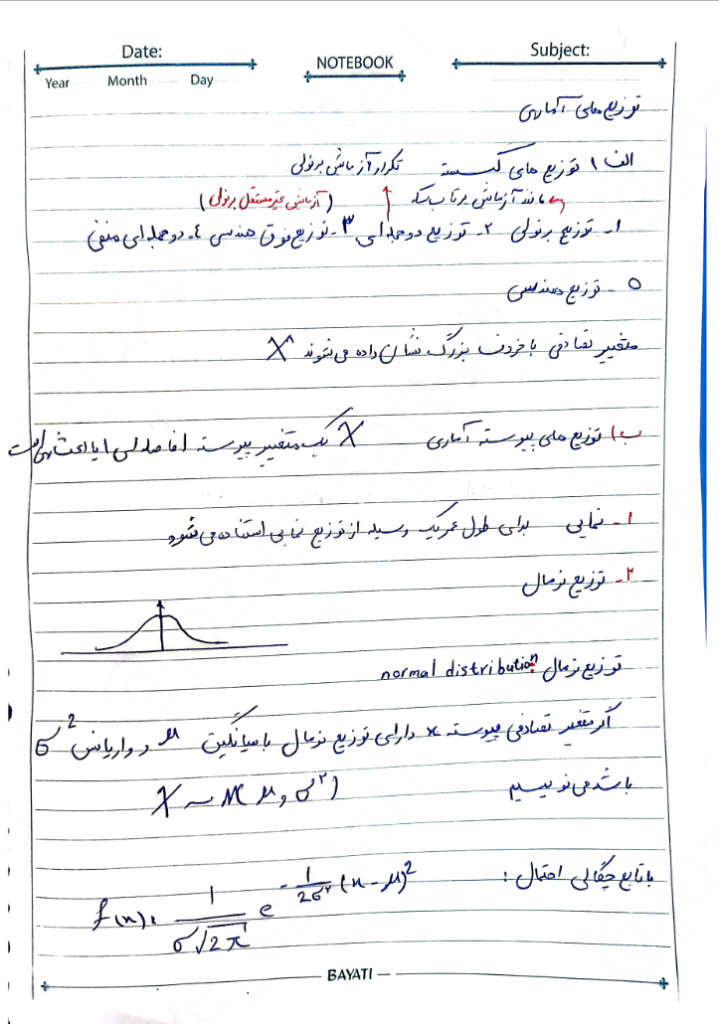 Date:
NOTEBOOK
Subject:
Year Month Day
توزیع های آماری
الف) توزیع های گسسته تکرار آزمایش برنولی
مانند آزمایش پرتاب سکه (آزمایش غیرمستقل برنولی)
۱- توزیع برنولی ۲- توزیع دوجمله ای ۳- توزیع فوق هندسی ٤- دوجمله ای منفی
۵- توزیع هندسی
متغییر تصادفی با حروف بزرگ نشان داده می شوند X
ب) توزیع های پیوسته آماری X یک متغییر پیوسته (فاصله ای) با اعشاری است
۱- نمایی برای طول عمر یک وسیله از توزیع نمایی استفاده می شود
۲- توزیع نرمال
توزیع نرمال normal distribution
اگر متغییر تصادفی پیوسته x دارای توزیع نرمال با میانگین μ و واریانس σ²
باشد می نویسیم X ~ N(μ, σ²)
با تابع چگالی احتمال : f(x) = 1/(σ√2π) e^(-1/(2σ²) (x-μ)²)
BAYATI